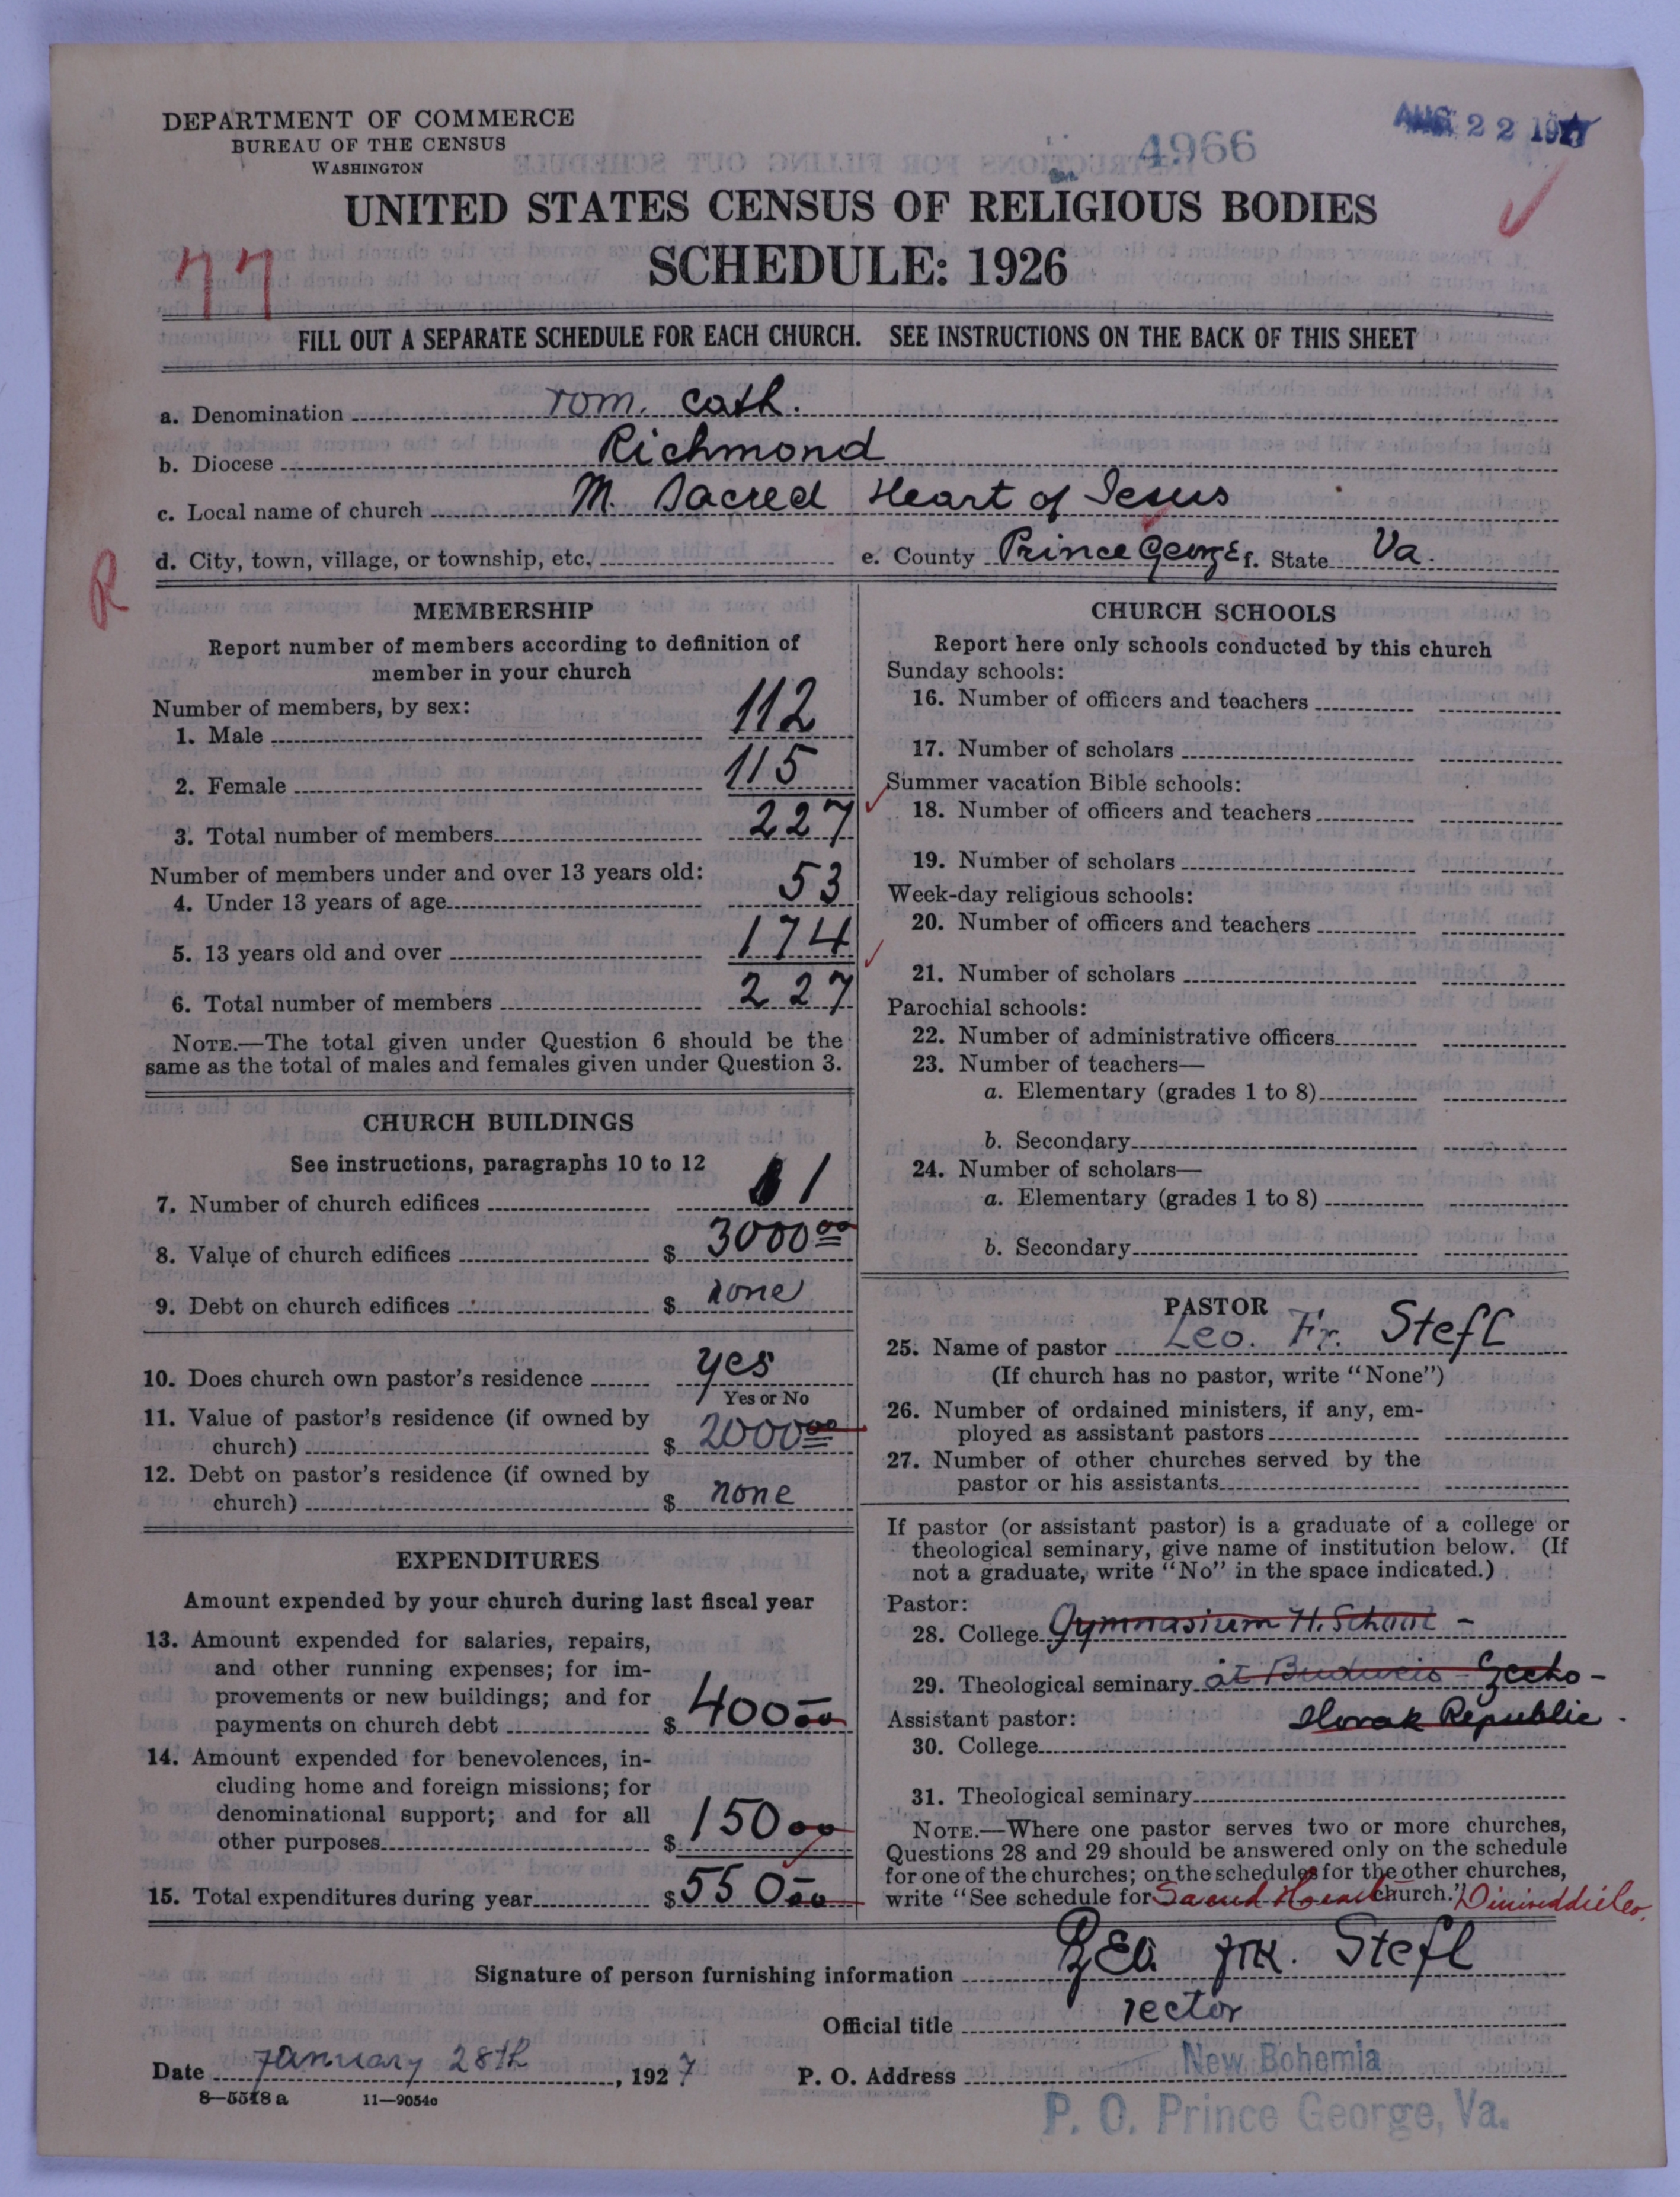 DEPARTMENT OF COMMERCE
BUREAU OF THE CENSUS
WASHINGTON
4966
AUG 22 1927
UNITED STATES CENSUS OF RELIGIOUS BODIES
SCHEDULE: 1926
77
FILL OUT A SEPARATE SCHEDULE FOR EACH CHURCH. SEE INSTRUCTIONS ON THE BACK OF THIS SHEET
a. Denomination rom. cath.
b. Diocese Richmond
c. Local name of church M. Sacred Heart of Jesus
d. City, town, village, or township, etc. e. County Prince George f. State Va.
R
MEMBERSHIP
Report number of members according to definition of
member in your church
Number of members, by sex:
1. Male 112
2. Female 115
3. Total number of members 227
Number of members under and over 13 years old:
4. Under 13 years of age 53
5. 13 years old and over 174
6. Total number of members 227
NOTE.—The total given under Question 6 should be the
same as the total of males and females given under Question 3.
CHURCH BUILDINGS
See instructions, paragraphs 10 to 12
7. Number of church edifices 1
8. Value of church edifices $ 3000 00
9. Debt on church edifices $ none
10. Does church own pastor's residence yes
Yes or No
11. Value of pastor's residence (if owned by
church) $ 2000 00
12. Debt on pastor's residence (if owned by
church) $ none
EXPENDITURES
Amount expended by your church during last fiscal year
13. Amount expended for salaries, repairs,
and other running expenses; for im-
provements or new buildings; and for
payments on church debt $ 400 00
14. Amount expended for benevolences, in-
cluding home and foreign missions; for
denominational support; and for all
other purposes $ 150 00
15. Total expenditures during year $ 550 00
CHURCH SCHOOLS
Report here only schools conducted by this church
Sunday schools:
16. Number of officers and teachers
17. Number of scholars
Summer vacation Bible schools:
18. Number of officers and teachers
19. Number of scholars
Week-day religious schools:
20. Number of officers and teachers
21. Number of scholars
Parochial schools:
22. Number of administrative officers
23. Number of teachers—
a. Elementary (grades 1 to 8)
b. Secondary
24. Number of scholars—
a. Elementary (grades 1 to 8)
b. Secondary
PASTOR
25. Name of pastor Leo. Fr. Stefl
(If church has no pastor, write "None")
26. Number of ordained ministers, if any, em-
ployed as assistant pastors
27. Number of other churches served by the
pastor or his assistants
If pastor (or assistant pastor) is a graduate of a college or
theological seminary, give name of institution below. (If
not a graduate, write "No" in the space indicated.)
Pastor:
28. College Gymnasium H. School -
29. Theological seminary at Budweis Zecho-
Assistant pastor: slovak Republic.
30. College
31. Theological seminary
NOTE.—Where one pastor serves two or more churches,
Questions 28 and 29 should be answered only on the schedule
for one of the churches; on the schedules for the other churches,
write "See schedule for Sacred Heart church." Dinwiddie Co.
Signature of person furnishing information Leo. Fr. Stefl
Official title rector
Date January 28th, 1927 P. O. Address New Bohemia
8—5518 a 11—9054c
P. O. Prince George, Va.